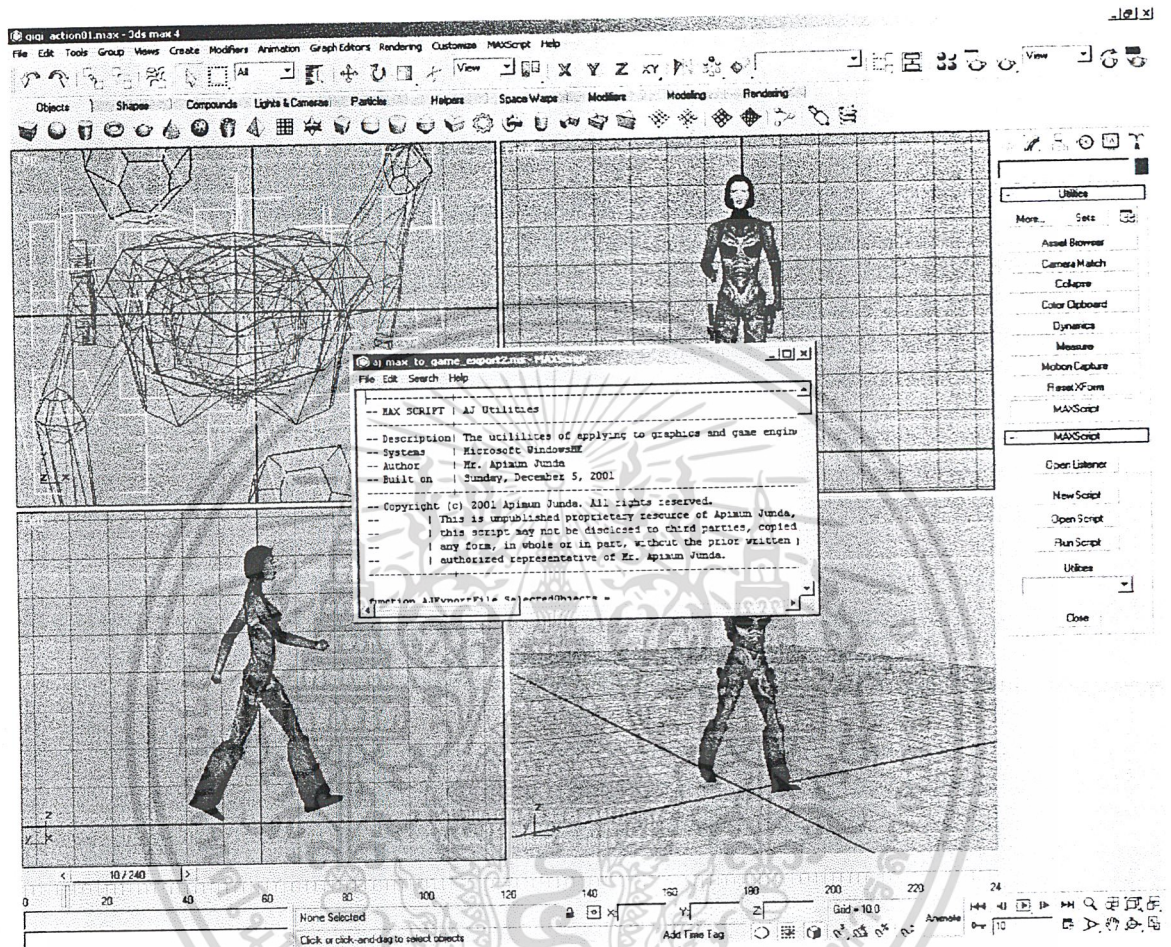 qiqi_action01.max - 3ds max 4
File Edit Tools Group Views Create Modifiers Animation Graph Editors Rendering Customize MAXScript Help
All View X Y Z XY View
Objects Shapes Compounds Lights & Cameras Particles Helpers Space Warps Modifiers Modeling Rendering
Utilities
More... Sets
Asset Browser
Camera Match
Collapse
Color Clipboard
Dynamics
Measure
Motion Capture
Reset XForm
MAXScript
MAXScript
Open Listener
New Script
Open Script
Run Script
Utilities
Close
aj max_to_game_export2.ms - MAXScript
File Edit Search Help
-- MAX SCRIPT | AJ Utilities
-- Description| The utililites of applying to graphics and game engin
-- Systems | Microsoft Windows
-- Author | Mr. Apimun Junda
-- Built on | Sunday, December 5, 2001
-- Copyright (c) 2001 Apimun Junda. All rights reserved.
-- | This is unpublished proprietary resource of Apimun Junda,
-- | this script may not be disclosed to third parties, copied
-- | any form, in whole or in part, without the prior written
-- | authorized representative of Mr. Apimun Junda.
function AJExportFile SelectedObjects =
z x
z y x
z y x
10 / 240
0 20 40 60 80 100 120 140 160 180 200 220 24
None Selected X: Y: Z: Grid = 10.0 Animate
Click or click-and-drag to select objects Add Time Tag 10